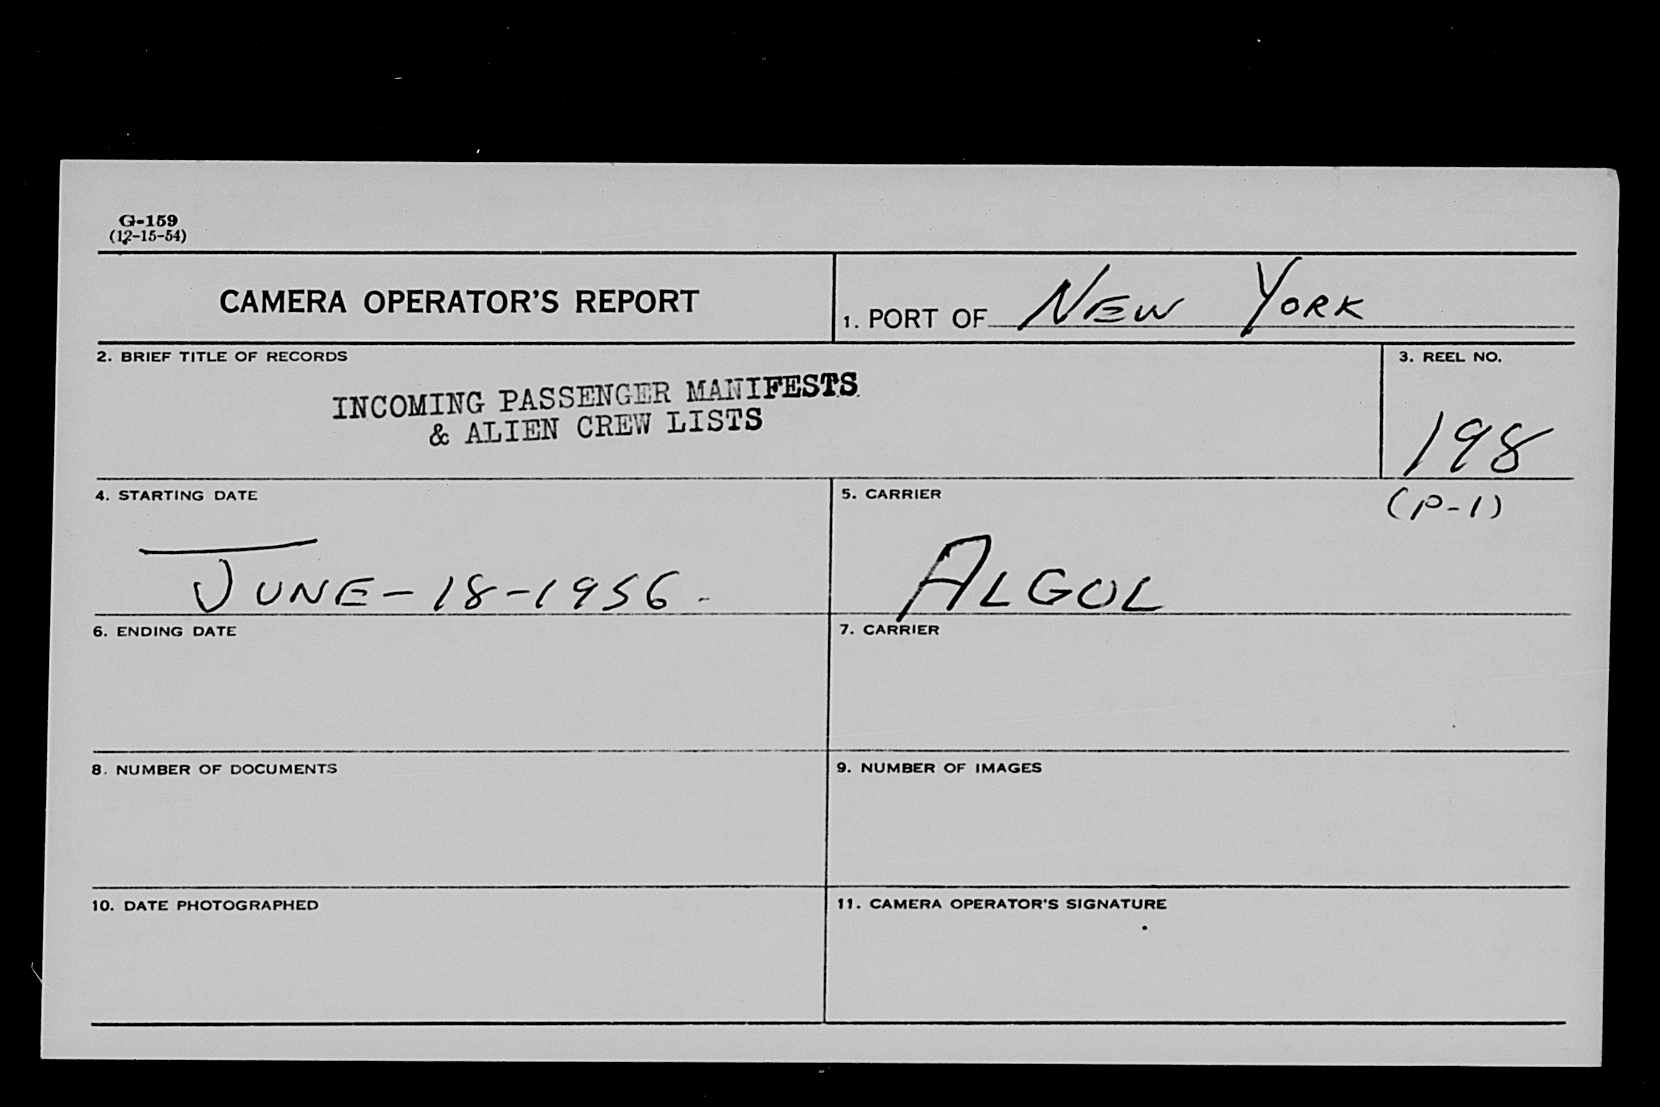 G-159
(12-15-54)
CAMERA OPERATOR'S REPORT
1. PORT OF NEW YORK
2. BRIEF TITLE OF RECORDS
INCOMING PASSENGER MANIFESTS
& ALIEN CREW LISTS
3. REEL NO.
198
(P-1)
4. STARTING DATE
JUNE-18-1956.
5. CARRIER
ALGOL
6. ENDING DATE
7. CARRIER
8. NUMBER OF DOCUMENTS
9. NUMBER OF IMAGES
10. DATE PHOTOGRAPHED
11. CAMERA OPERATOR'S SIGNATURE